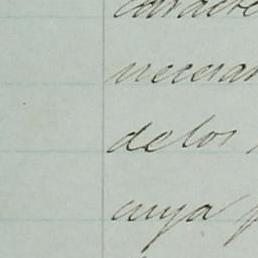 caracte
necesar
de los
cuya p